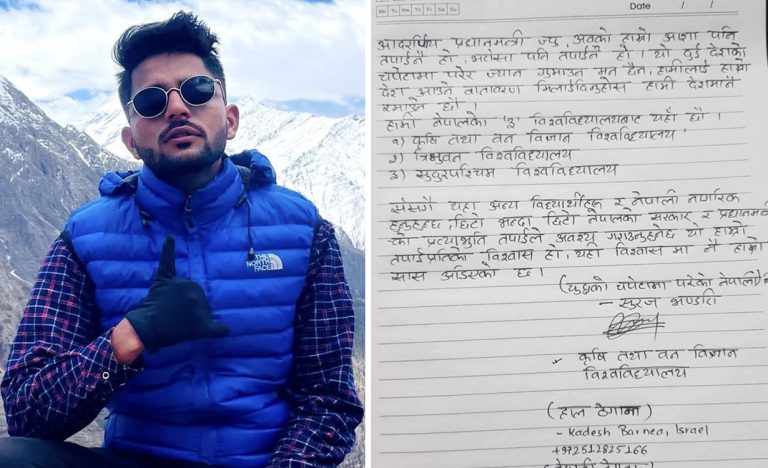 THE
NORTH
FACE
Mo Tu We Th Fr Sa Su
Date / /
आदरणिय प्रधानमन्त्री ज्यु, अबको हाम्रो आशा पनि
तपाईनै हो, भरोसा पनि तपाईनै हो । यो दुई देशको
चपेटामा परेर ज्यान गुमाउन मन छैन, हामीलाई हाम्रो
देश आउने वातावरण मिलाईदिनुहोस हामी देशमानै
रमाउने छौं ।
हामी नेपालको '३' विश्वविद्यालयबाट यहाँ छौं ।
१) कृषि तथा वन विज्ञान विश्वविद्यालय
२) त्रिभुवन विश्वविद्यालय
३) सुदुरपश्चिम विश्वविद्यालय
सँसगै यहा अन्य विद्यार्थीहरू र नेपाली नागरिक
हुनुहुन्छ, छिटो भन्दा छिटो नेपालको सरकार र प्रधानमन्
को प्रत्याभुति तपाईले अवश्य गराउनुहुनेछ यो हाम्रो
तपाई प्रतिको विश्वास हो, यही विश्वास मा नै हाम्रो
सास अडिएको छ ।
(युद्धको चपेटामा परेको नेपाली
- सुरज भण्डारी
कृषि तथा वन विज्ञान
विश्वविद्यालय
(हाल ठेगाना)
- Kadesh Barnea, Israel
+972512825166